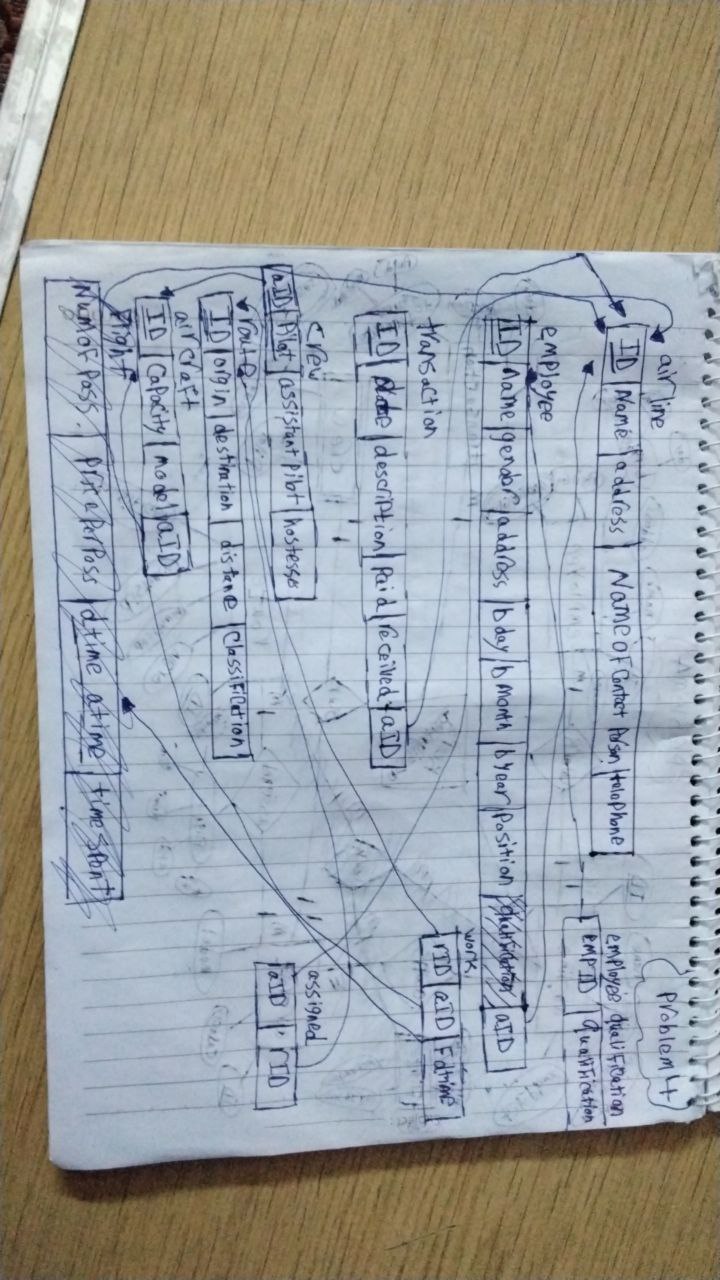 Problem 4
airline
ID Name address Name of Contact Person telephone
employee qualification
empID qualification
employee
ID name gender address bday bmonth byear position qualification aID
work
rID aID Fdtime
transaction
ID date description paid received aID
crew
aID Pilot assistant pilot hostesse
assigned
aID rID
route
ID origin destination distance Classification
aircraft
ID Capacity model aID
flight
Num of pass. Price Per Pass dtime atime time spent